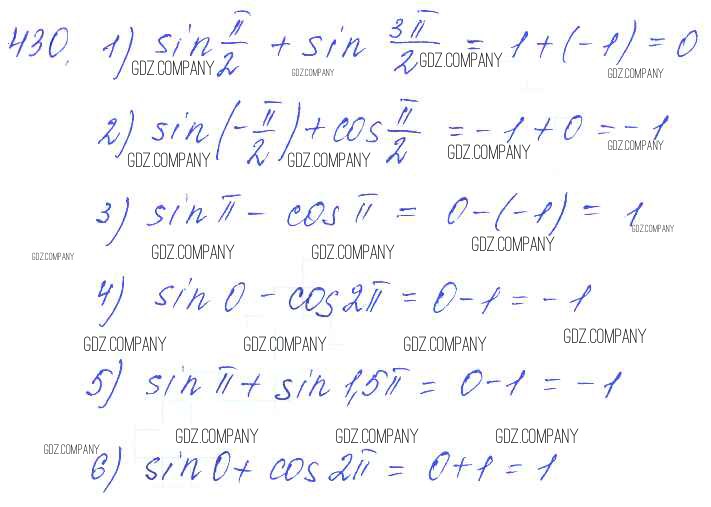 430. 1) sin π/2 + sin 3π/2 = 1 + (-1) = 0
GDZ.COMPANY GDZ.COMPANY GDZ.COMPANY GDZ.COMPANY
2) sin (-π/2) + cos π/2 = -1 + 0 = -1
GDZ.COMPANY GDZ.COMPANY GDZ.COMPANY GDZ.COMPANY
3) sin π - cos π = 0 - (-1) = 1
GDZ.COMPANY GDZ.COMPANY GDZ.COMPANY GDZ.COMPANY GDZ.COMPANY
4) sin 0 - cos 2π = 0 - 1 = -1
GDZ.COMPANY GDZ.COMPANY GDZ.COMPANY GDZ.COMPANY
5) sin π + sin 1,5π = 0 - 1 = -1
GDZ.COMPANY GDZ.COMPANY GDZ.COMPANY GDZ.COMPANY
6) sin 0 + cos 2π = 0 + 1 = 1